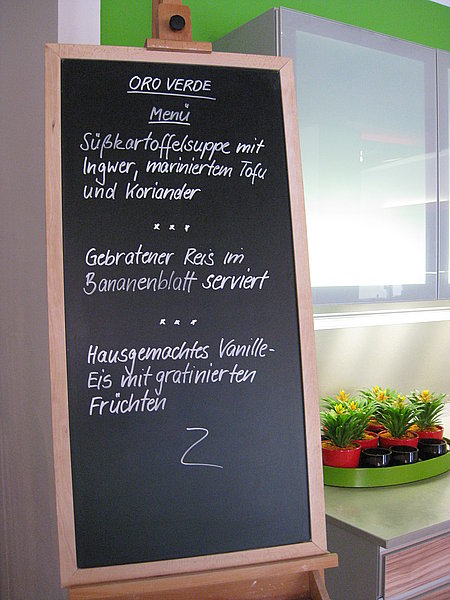 ORO VERDE
Menü
Süßkartoffelsuppe mit
Ingwer, mariniertem Tofu
und Koriander
* * *
Gebratener Reis im
Bananenblatt serviert
* * *
Hausgemachtes Vanille-
Eis mit gratinierten
Früchten